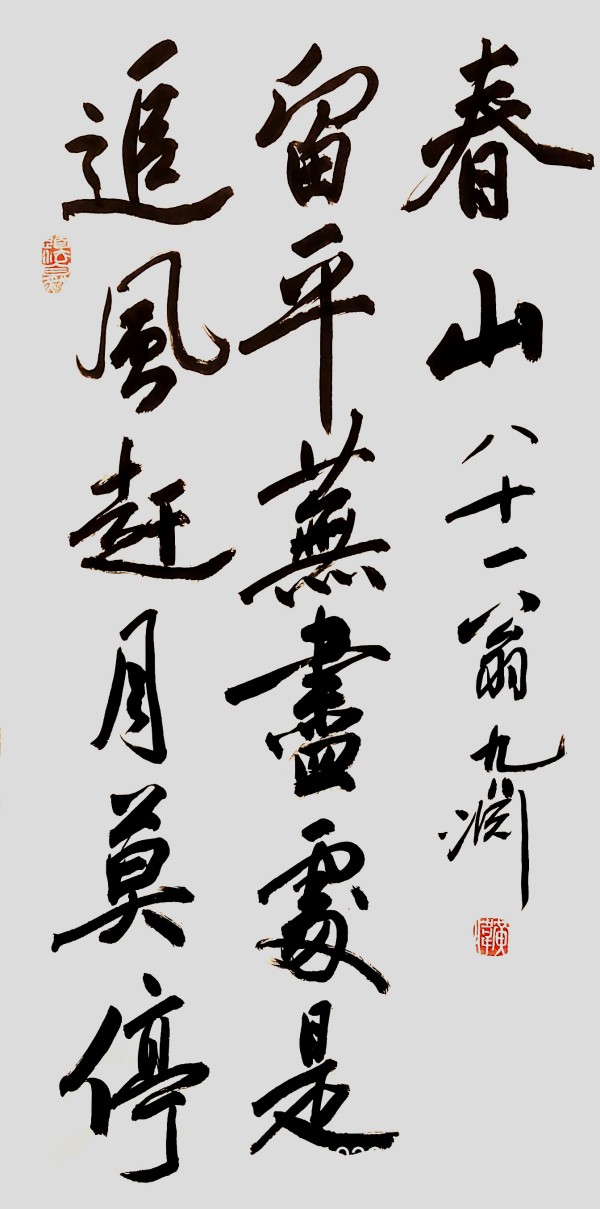 追風赶月莫停
留平蕪盡處是
春山 八十一翁九渊